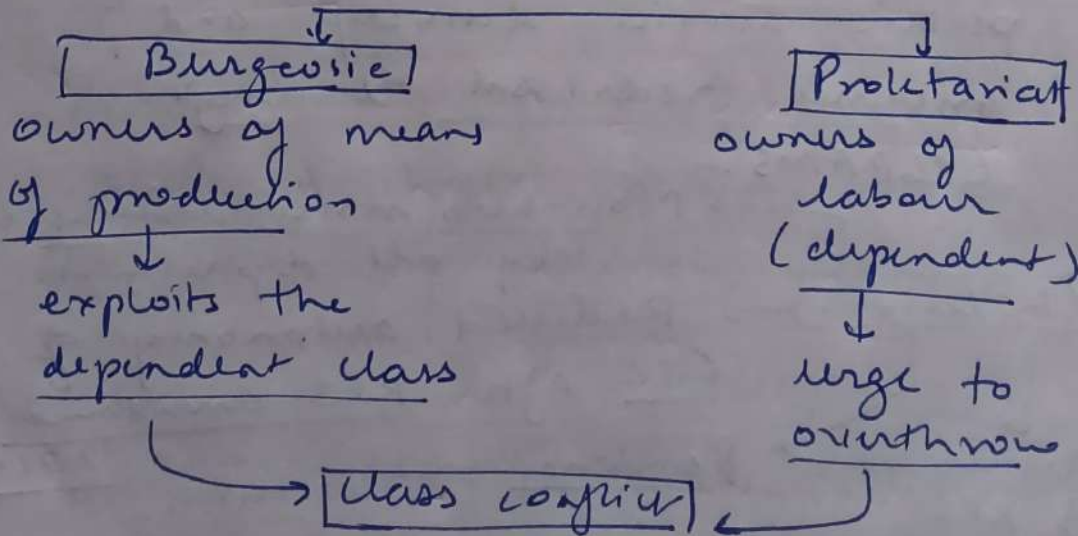 Burgeosie
owners of means
of production
exploits the
dependent class
Proletariat
owners of
labour
(dependent)
urge to
overthrow
Class conflict